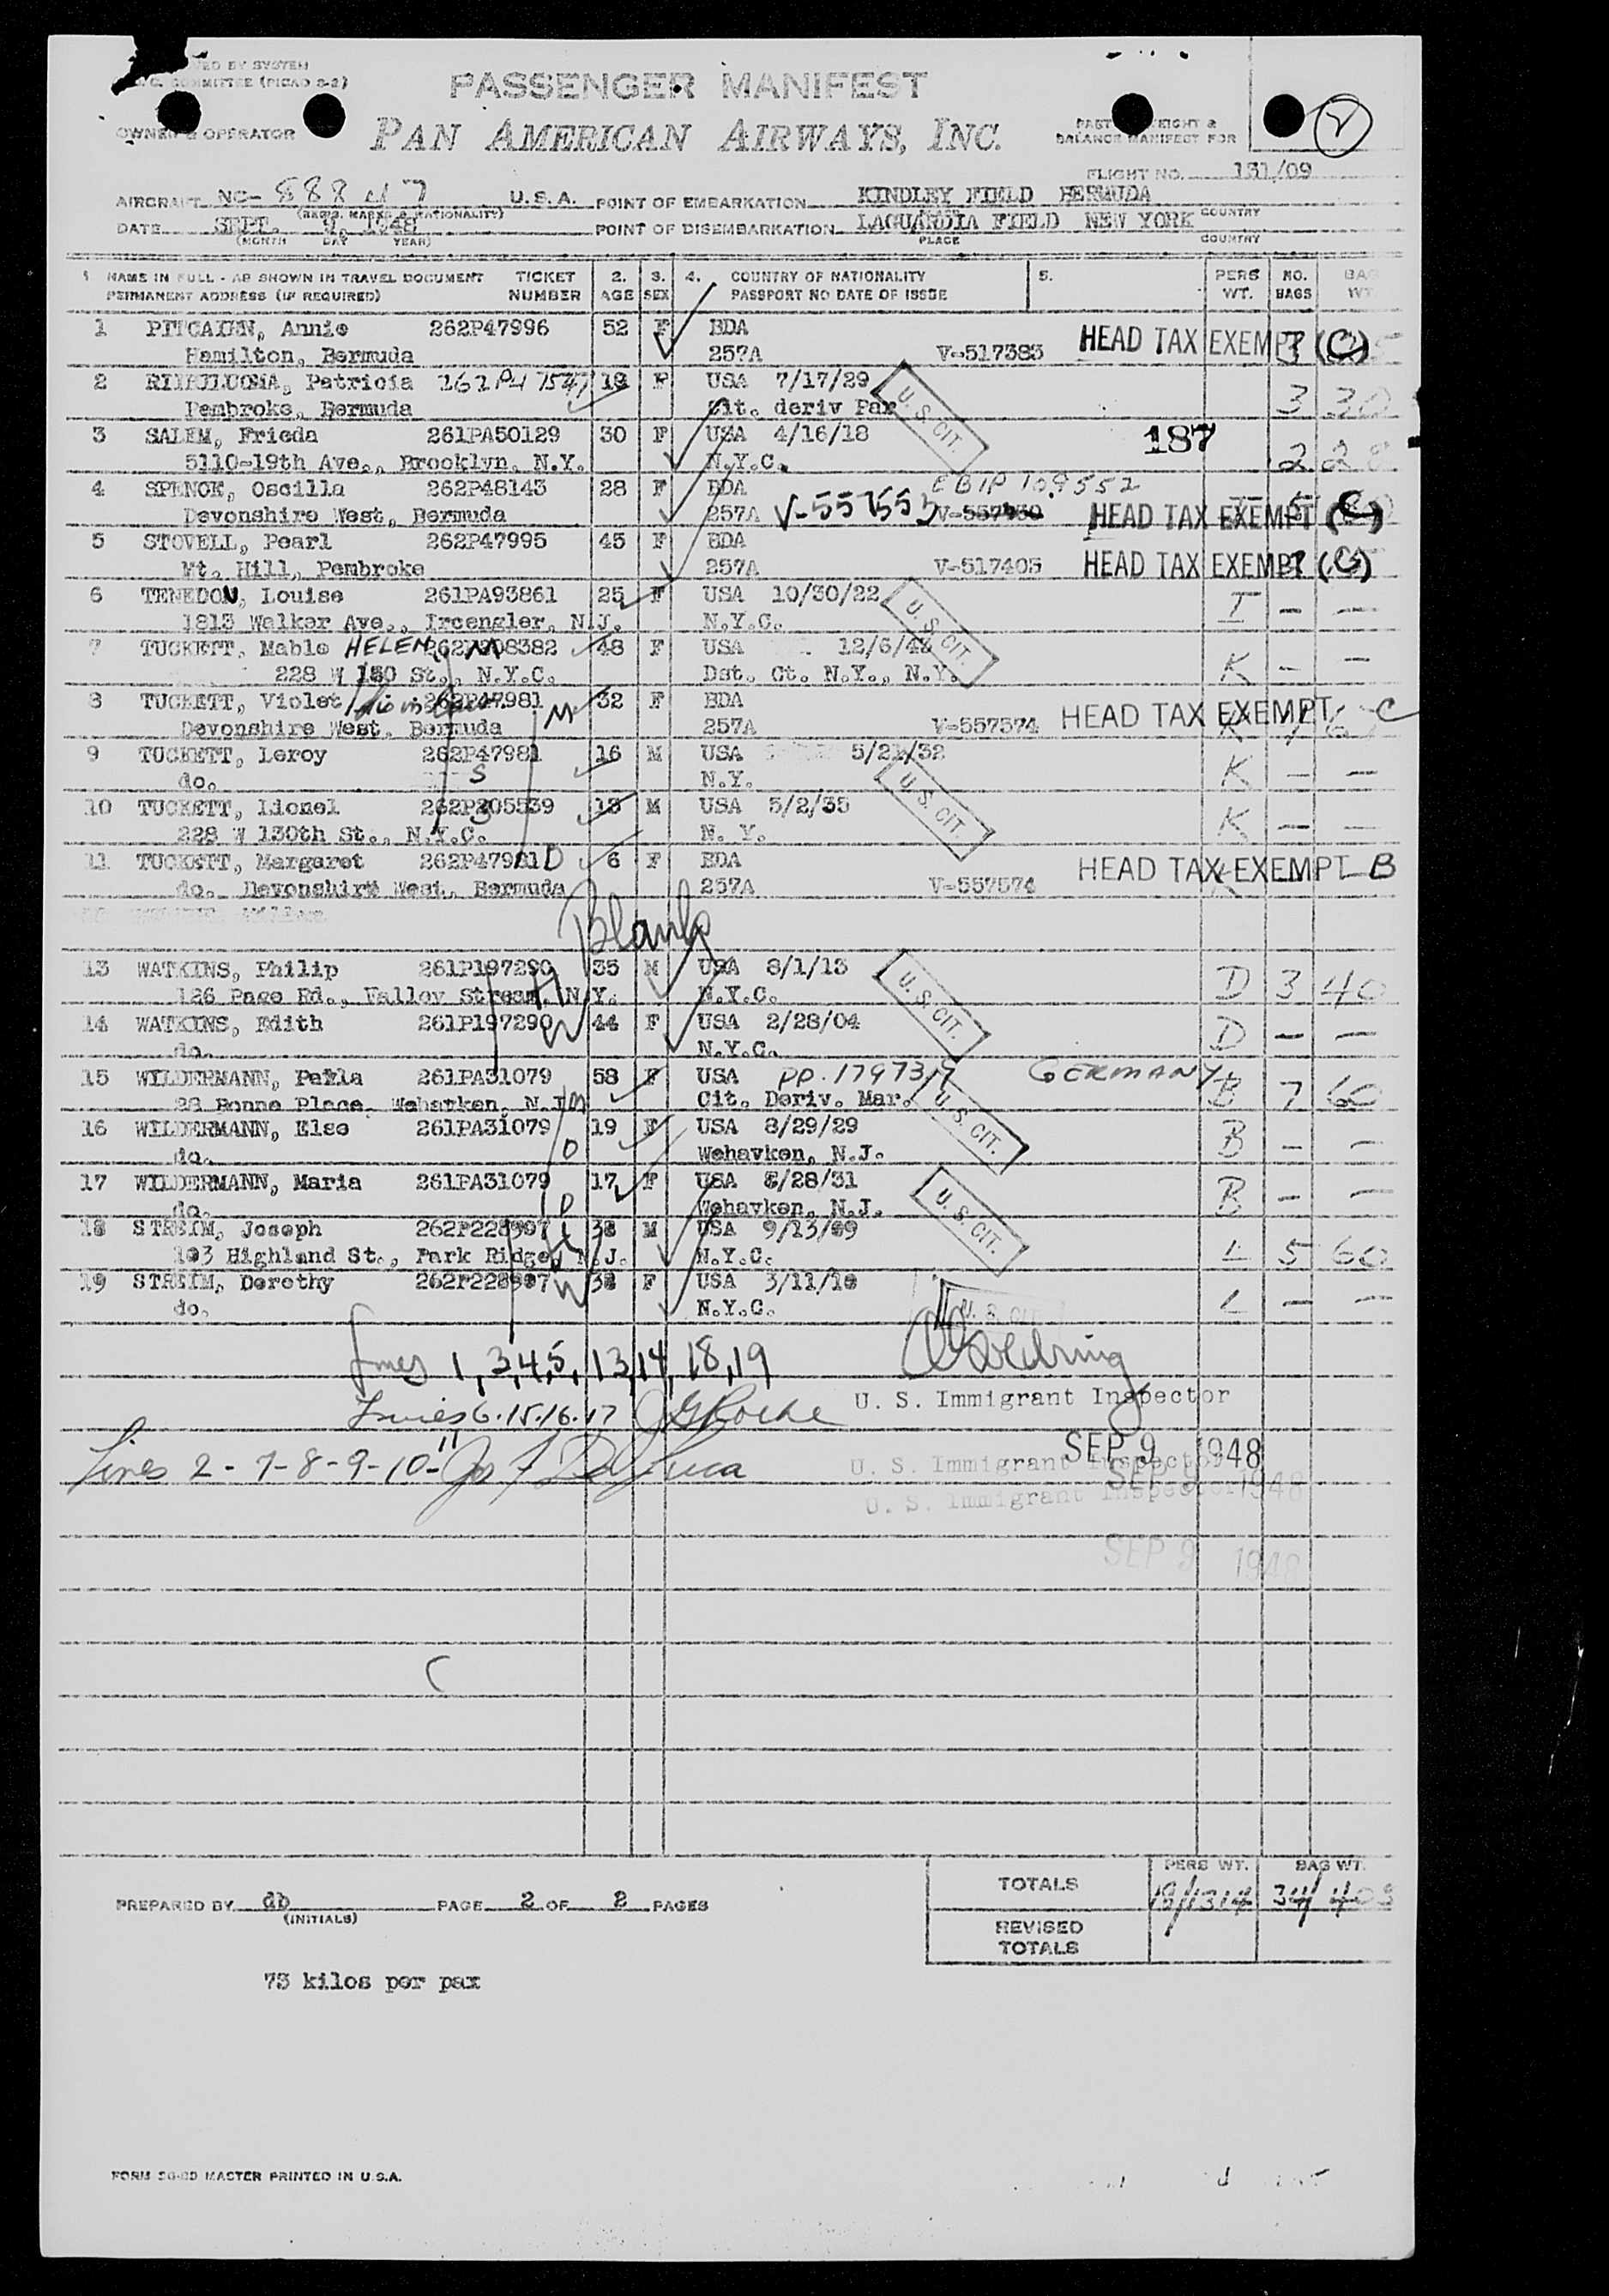 PASSENGER MANIFEST
OWNER & OPERATOR
PAN AMERICAN AIRWAYS, INC.
BALANCE MANIFEST FOR
FLIGHT NO. 131/09
AIRCRAFT NC- 88847 U.S.A. POINT OF EMBARKATION KINDLEY FIELD BERMUDA
DATE SEPT. 9, 1948 POINT OF DISEMBARKATION LAGUARDIA FIELD NEW YORK COUNTRY
(MONTH DAY YEAR) PLACE COUNTRY
1 NAME IN FULL - AS SHOWN IN TRAVEL DOCUMENT TICKET 2. 3. 4. COUNTRY OF NATIONALITY 5. PERS NO. BAG
PERMANENT ADDRESS (IF REQUIRED) NUMBER AGE SEX PASSPORT NO DATE OF ISSUE WT. BAGS WT.
1 PITCAIRN, Annie 262P47996 52 F BDA HEAD TAX EXEMPT (C)
Hamilton, Bermuda 257A V-517383
2 Patricia 19 F USA 7/17/29 U.S. CIT. 3
Pembroke, Bermuda Cit. deriv Par
3 SALEM, Frieda 261PA50129 30 F USA 4/16/18 187 2
5110-19th Ave., Brooklyn, N.Y. N.Y.C.
4 SPENCE, Oscilla 262P48143 28 F BDA
Devonshire West, Bermuda 257A V-557553 HEAD TAX EXEMPT (C)
5 STOVELL, Pearl 262P47995 45 F BDA
Mt. Hill, Pembroke 257A V-517405 HEAD TAX EXEMPT (C)
6 TENEDOU, Louise 261PA93861 25 F USA 10/30/22 U.S. CIT. I - -
1813 Walker Ave., N.J. N.Y.C.
7 TUCKETT, Mable HELEN M 48 F USA K - -
228 W 130 St., N.Y.C. Dst. Ct. N.Y., N.Y.
8 TUCKETT, Violet 262P47981 M 32 F BDA HEAD TAX EXEMPT C
Devonshire West, Bermuda 257A V-557574
9 TUCKETT, Leroy 262P47981 16 M USA 5/21/32 U.S. CIT. K - -
do. S N.Y.
10 TUCKETT, Lionel 262P205539 13 M USA 5/2/35 K - -
228 W 130th St., N.Y.C. S N. Y.
11 TUCKETT, Margaret 262P47981 D 6 F BDA HEAD TAX EXEMPT B
do. Devonshire West, Bermuda 257A V-557574
Blank
13 WATKINS, Philip 261P197290 H 35 M USA 8/1/13 U.S. CIT. D 3 40
126 Page Rd., Valley Stream, N.Y. N.Y.C.
14 WATKINS, Edith 261P197290 W 44 F USA 2/28/04 D - -
do. N.Y.C.
15 WILDERMANN, 261PA31079 58 F USA PP. GERMANY B 7 60
Place, N.J. M Cit. Deriv. Mar. U.S. CIT.
16 WILDERMANN, Else 261PA31079 19 F USA 8/29/29 B - -
do. D Wehavken, N.J.
17 WILDERMANN, Maria 261PA31079 17 F USA 8/28/31 U.S. CIT. B - -
do. D Wehavken, N.J.
18 STREIM, Joseph 38 M USA L 5 60
103 Highland St., Park Ridge, N.J. N.Y.C.
19 STREIM, Dorothy W 38 F USA 3/11/10 L - -
do. N.Y.C. U.S. CIT
Lines 1,3,4,5,13,14,18,19
U. S. Immigrant Inspector
Lines 6.15.16.17
SEP 9 1948
Lines 2-7-8-9-10-11
U. S. Immigrant Inspector
SEP 9 1948
U. S. Immigrant Inspector
SEP 9 1948
PERS WT. BAG WT.
TOTALS 18/1314 34/
PREPARED BY db PAGE 2 OF 2 PAGES
(INITIALS)
REVISED
TOTALS
73 kilos per pax
MASTER PRINTED IN U.S.A.